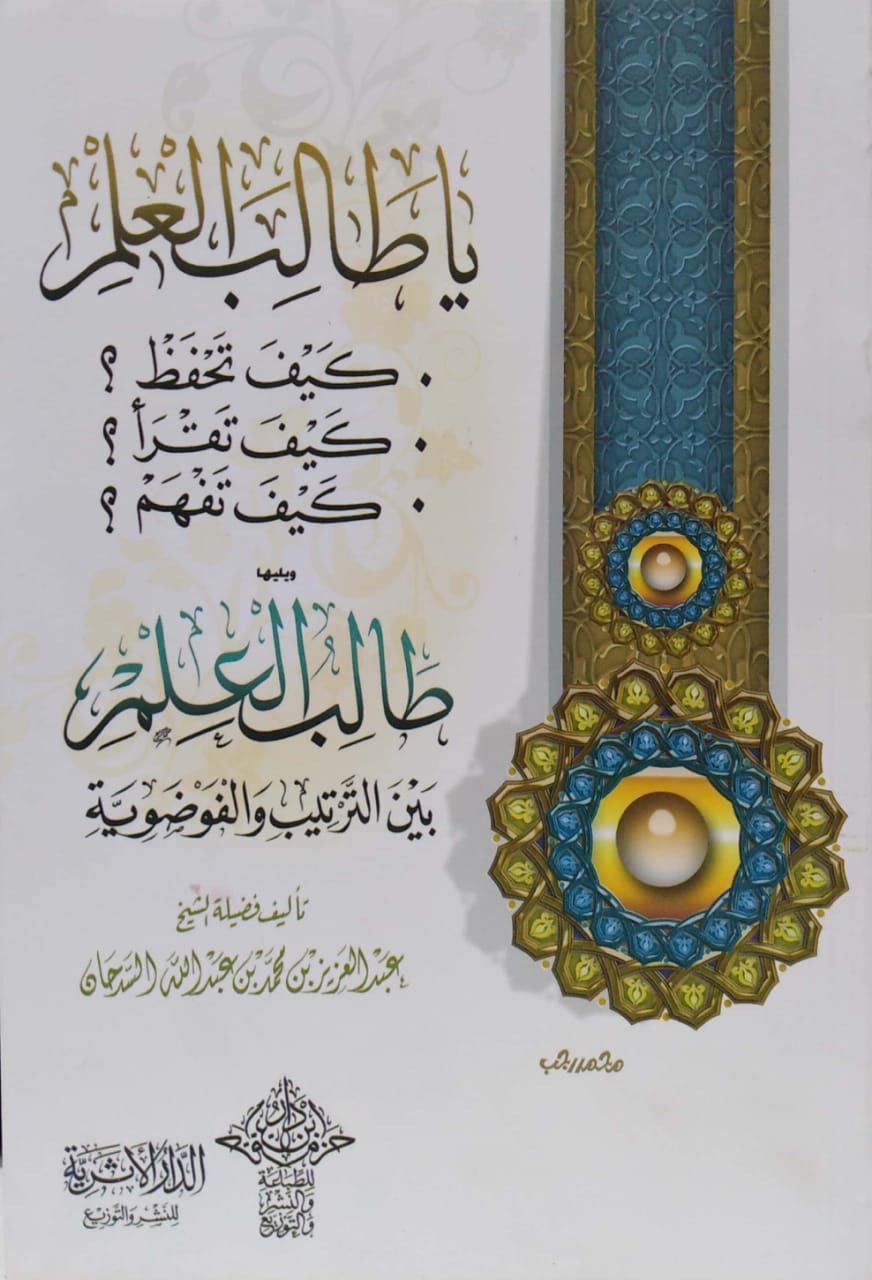 يَا طَالِبَ الْعِلْمِ
. كَيْفَ تَحْفَظْ ؟
. كَيْفَ تَقْرَأ ؟
. كَيْفَ تَفْهَمْ ؟
ويليها
طَالِبُ الْعِلْمِ
بَيْنَ التَّرْتِيبِ وَالْفَوْضَوِيَّةِ
تأليف فضيلة الشيخ
عَبْدِ الْعَزِيزِ بْنِ مُحَمَّدِ بْنِ عَبْدِ اللهِ السَّدْحَان
محمد رجب
دار ابن حزم
للطِّبَاعَة
وَالنَّشْر
وَالتَّوْزِيْع
الدَّارُ الأَثَرِيَّة
لِلنَّشْرِ وَالتَّوْزِيْع